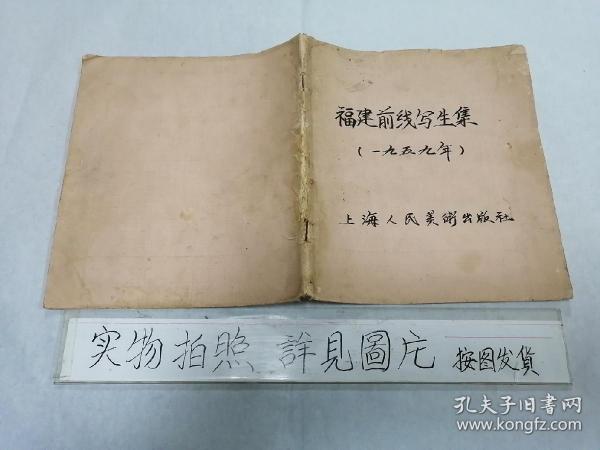 福建前线写生集
(一九五九年)
上海人民美術出版社
实物拍照 詳見圖片 按图发貨
孔夫子旧書网
www.kongfz.com